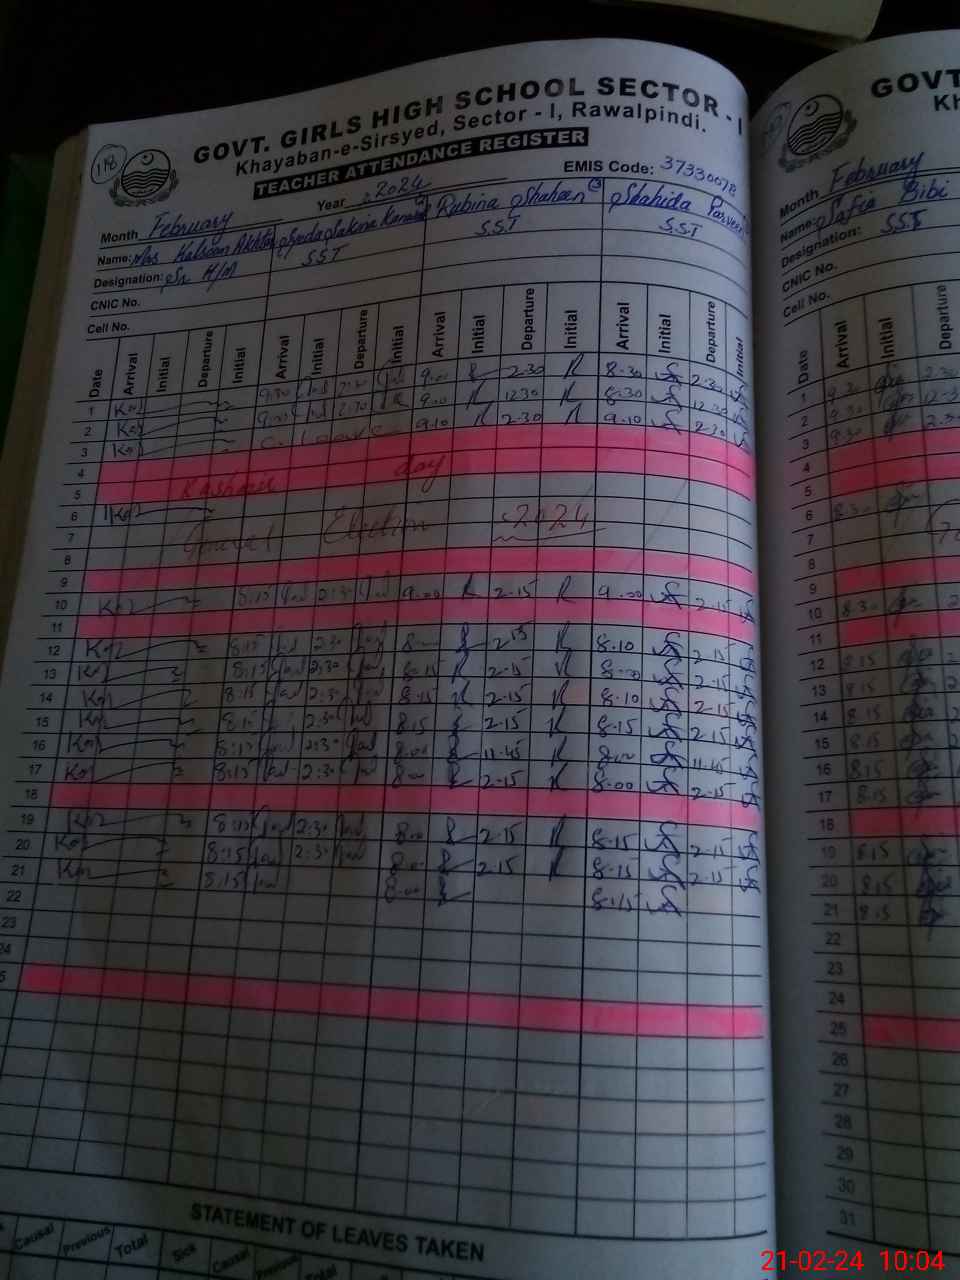 118
GOVT. GIRLS HIGH SCHOOL SECTOR - I
Khayaban-e-Sirsyed, Sector - I, Rawalpindi.
TEACHER ATTENDANCE REGISTER
EMIS Code: 37330078
Month February Year 2024
Name: Mrs Kalsoom Akhtar Syeda Sakina Rubina Shaheen Shahida Parveen
Designation: Sr. H/M SST SST SST
CNIC No.
Cell No.
Date Arrival Initial Departure Initial Arrival Initial Departure Initial Arrival Initial Departure Initial Arrival Initial Departure Initial
1 9:30 2:30 9.00 2.30 8.30 2.30
2 9:00 9.00 12.30 8.30 12.30
3 C. Leave 9.10 2.30 9.10 2.30
4
5 Kashmir day
6
7 General Election 2024
8
9
10 8:15 2:30 9.00 2.15 9.00 2.15
11
12 8:15 2:30 2.15 8.10 2.15
13 8:15 2:30 8.15 2.15 2.15
14 8:15 2:30 8.15 2.15 8.10 2.15
15 8:15 2:30 8.15 2.15 8.15 2.15
16 8:15 2:30 8.00 11.45 8.00 11.45
17 8:15 2:30 2.15 8.00 2.15
18
19 8:15 2:30 8.00 2.15 8.15 2.15
20 8:15 2:30 8.00 2.15 8.15 2.15
21 8:15 8.00 8.15
22
23
24
5
STATEMENT OF LEAVES TAKEN
Causal Previous Total Sick Causal Previous Total
GOVT
Kh
Month February
Name: Safia Bibi
Designation: SST
CNIC No.
Cell No.
Date Arrival Initial Departure
1 9.30 2.30
2 9.30
3 9.30
4
5
6 8.30
7
8
9
10 8.30
11
12 8.15
13 8.15
14 8.15
15 8.15
16 8.15
17 8.15
18
19 8.15
20 8.15
21 8.15
22
23
24
25
26
27
28
29
30
31
21-02-24 10:04